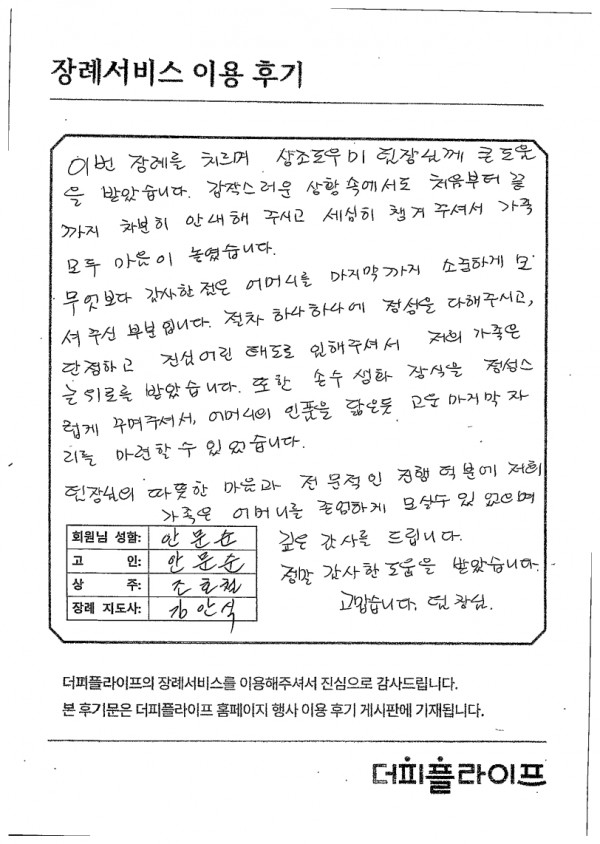 장례서비스 이용 후기
이번 장례를 치르며 상조도우미 팀장님께 큰 도움
을 받았습니다. 갑작스러운 상황 속에서도 처음부터 끝
까지 차분히 안내해 주시고 세심히 챙겨 주셔서 가족
모두 마음이 놓였습니다.
무엇보다 감사한 점은 어머니를 마지막까지 소중하게 모
셔 주신 부분입니다. 절차 하나하나에 정성을 다해주시고,
단정하고 진심어린 태도로 임해주셔서 저희 가족은
큰 위로를 받았습니다. 또한 손수 생화 장식을 정성스
럽게 꾸며주셔서, 어머니의 인품을 닮은듯 고운 마지막 자
리를 마련할 수 있었습니다.
팀장님의 따뜻한 마음과 전문적인 진행 덕분에 저희
가족은 어머니를 존엄하게 모실수 있었으며
깊은 감사를 드립니다.
정말 감사한 도움을 받았습니다.
고맙습니다. 팀장님.
회원님 성함: 안문순
고 인: 안문순
상 주: 조호철
장례 지도사: 김안식
더피플라이프의 장례서비스를 이용해주셔서 진심으로 감사드립니다.
본 후기문은 더피플라이프 홈페이지 행사 이용 후기 게시판에 기재됩니다.
더피플라이프